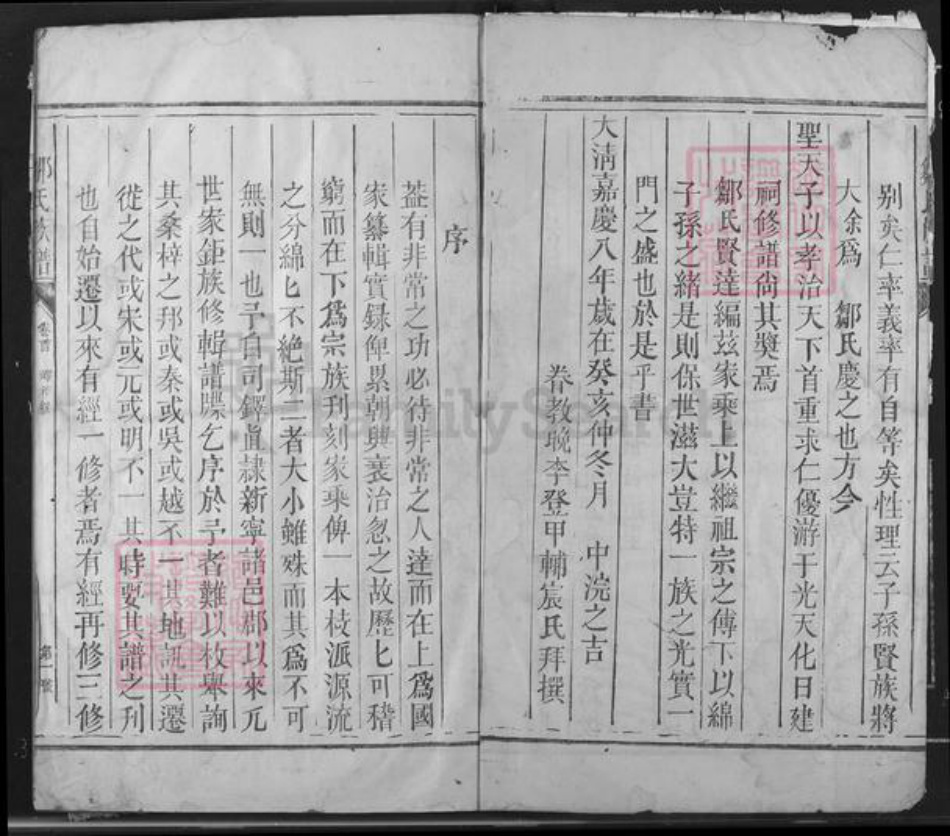 别矣仁率義率有自等矣性理云子孫賢族將
大余爲 鄒氏慶之也方今
聖天子以孝治天下首重求仁優游于光天化日建
祠修譜尚其奬焉
鄒氏賢達編茲家乘上以繼祖宗之傳下以綿
子孫之緒是則保世滋大豈特一族之光實一
門之盛也於是乎書
大清嘉慶八年歲在癸亥仲冬月 中浣之吉
眷教晚李登甲輔宸氏拜撰
序
葢有非常之功必待非常之人達而在上爲國
家纂輯實録俾累朝興衰治忽之故歷匕可稽
窮而在下爲宗族刊刻家乘俾一本枝派源流
之分綿匕不絶斯二者大小雖殊而其爲不可
無則一也予自司鐸眞隷新寧諸邑郡以來兀
世家鉅族修輯譜牒乞序於予者難以枚舉詢
其桑梓之邦或秦或吳或越不一其地訊其遷
從之代或宋或元或明不一其時要其譜之刋
也自始遷以來有經一修者焉有經再修三修
鄒氏族譜
卷首
第一號
FamilySearch